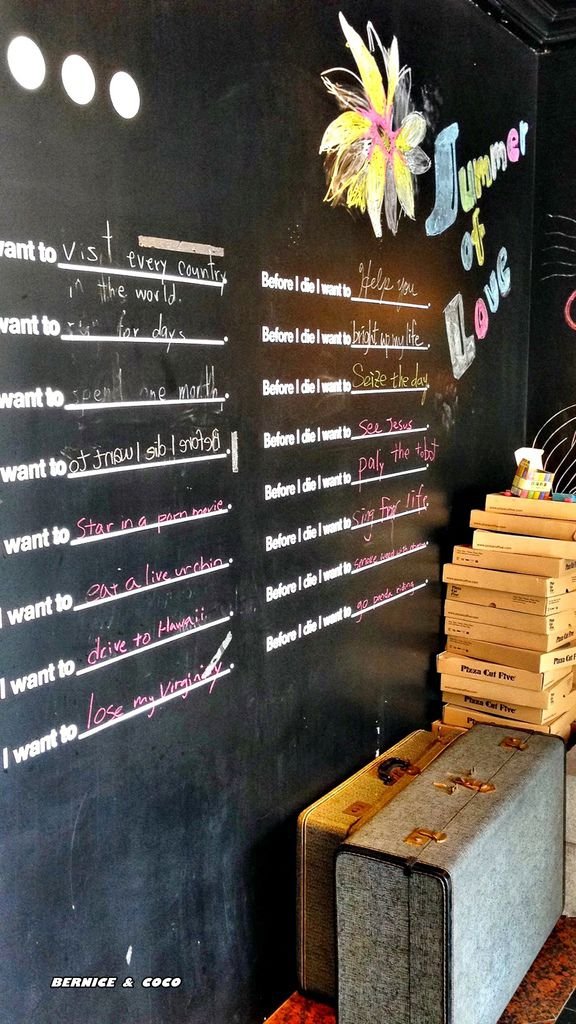 Summer
of
Love
want to visit every country
in the world.
want to for days.
want to spend one month.
want to Before I die I want to.
want to star in a porn movie.
I want to eat a live urchin.
I want to drive to Hawaii.
I want to lose my Virginity.
Before I die I want to Help you.
Before I die I want to bright up my life.
Before I die I want to Seize the day.
Before I die I want to see Jesus.
Before I die I want to paly the tobot
Before I die I want to sing for life.
Before I die I want to smoke weed with.
Before I die I want to go panda riding.
Pizza Cut Five
Pizza Cut Five
Pizza Cut Five
BERNICE & COCO